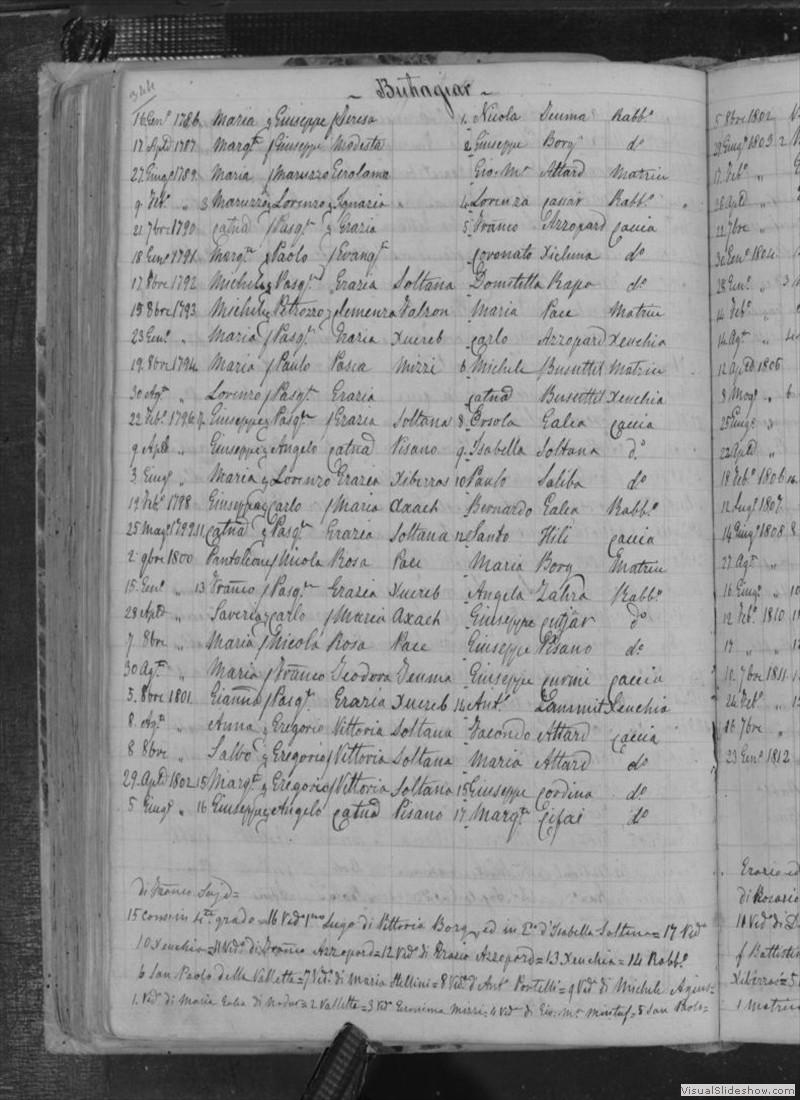 344
~ Buhagiar ~
16 Gen.º 1786 Maria Giuseppe Teresa 1. Nicola Deuma Rabb.º
17 Aple 1787 Marg.ta Giuseppe Modesta 2 Giuseppe Borg d.º
27 Giug.º 1789 Maria Maruzzo Gerolama Gio. M.ª Attard Matrice
9 Feb.º „ 3 Maruzzo Lorenzo Ignazia 4 Lorenza Rabb.º
21 7bre 1790 Catnª Pasq.le Grazia 5 Franco Azzopard Caccia
18 Genº 1791 Marg.ta Paolo Evang.ta Coronato Xicluna d.º
17 8bre 1792 Michele Pasq.le Grazia Soltana Domitilla Rapa d.º
15 8bre 1793 Michele Petrozzo Clemenza Falzon Maria Pace Matrice
23 Gen.º „ Maria Pasq.le Grazia Xuereb Carlo Azzopard Xeuchia
19 8bre 1794 Maria Paulo Pasca Mizzi 6 Michele Busuttil Matrice
30 Ag.to „ Lorenzo Pasq.le Grazia Catnª Busuttil Xeuchia
22 Feb.º 1796 7 Giuseppe Pasq.le Grazia Soltana 8 Orsola Galea Caccia
9 Aple „ Giuseppe Angelo Catnª Pisano 9 Isabella Soltana d.º
3 Giug.º „ Maria Lorenzo Grazia Xiberras 10 Paulo Saliba d.º
19 Feb.º 1798 Giuseppa Carlo Maria Axach Bernardo Galea Rabb.º
25 Mag.º 1799 11 Catnª Pasq.le Grazia Soltana 12 Santo Hili Caccia
2 9bre 1800 Pantolione Nicola Rosa Pace Maria Borg Matrice
15 Gen.º „ 13 Franco Pasq.le Grazia Xuereb Angela Zahra Rabb.º
28 Aple „ Saveria Carlo Maria Axach Giuseppe Cutjar d.º
7 8bre „ Maria Nicola Rosa Pace Giuseppe Pisano d.º
30 Ag.to „ Maria Franco Teodora Teuma Giuseppe Curmi Caccia
5 8bre 1801 Gianna Pasq.le Grazia Xuereb 14 Ant.º Zammit Xeuchia
8 Ag.to „ Anna Gregorio Vittoria Soltana Facondo Attard Caccia
8 8bre „ Salbo Gregorio Vittoria Soltana Maria Attard d.º
29 Aple 1802 15 Marg.ta Gregorio Vittoria Soltana 15 Giuseppe Cordina d.º
5 Giug.º „ 16 Giuseppe Angelo Catnª Pisano 17 Marg.ta Cifai d.º
di Franco
15 Consin 4.to grado = 16 Vedº 1mo Lugo di Vittoria Borg, ed in 2.º d'Isabella Soltana = 17 Vedª
10 Xeuchia = 11 Vedª di Franco Azzopard = 12 Ved di Grazio Azzopard = 13 Xeuchia = 14 Rabb.º
6 San Paolo della Valletta = 7 Vedº di Maria Stellini = 8 Vedª d'Ant.º Portelli = 9 Vedª di Michele Agius =
1. Vedº di Maria Galea di Nadur = 2 Vallette = 3 Vedº Geronima Mizzi = 4 Vedª di Gio. M.ª Mintuf = 5 San Paolo =
5 8bre 1802
Giug.º 1803 2
17 Feb.º „
26 Aple „
22 7bre „
30 Gen.º 1804
28 Gen.º „ 3
14 Feb.º „
14 Ag.to „
12 Aple 1805
8 Mag.º „ 6
25 Giug.º „
22 Aple „
18 Feb.º 1806
12 Lugº 1807
14 Giug.º 1808 8
27 Ag.to „
16 Giug.º „ 10
12 Feb.º 1810 11
17 „ „
10 7bre 1811
24 Feb.º „
16 7bre „
23 Gen.º 1812
Grazio ed
di Rosario
10 Vedº di
f Battistin
Xiberras = 5
1 Matrice
VisualSlideshow.com